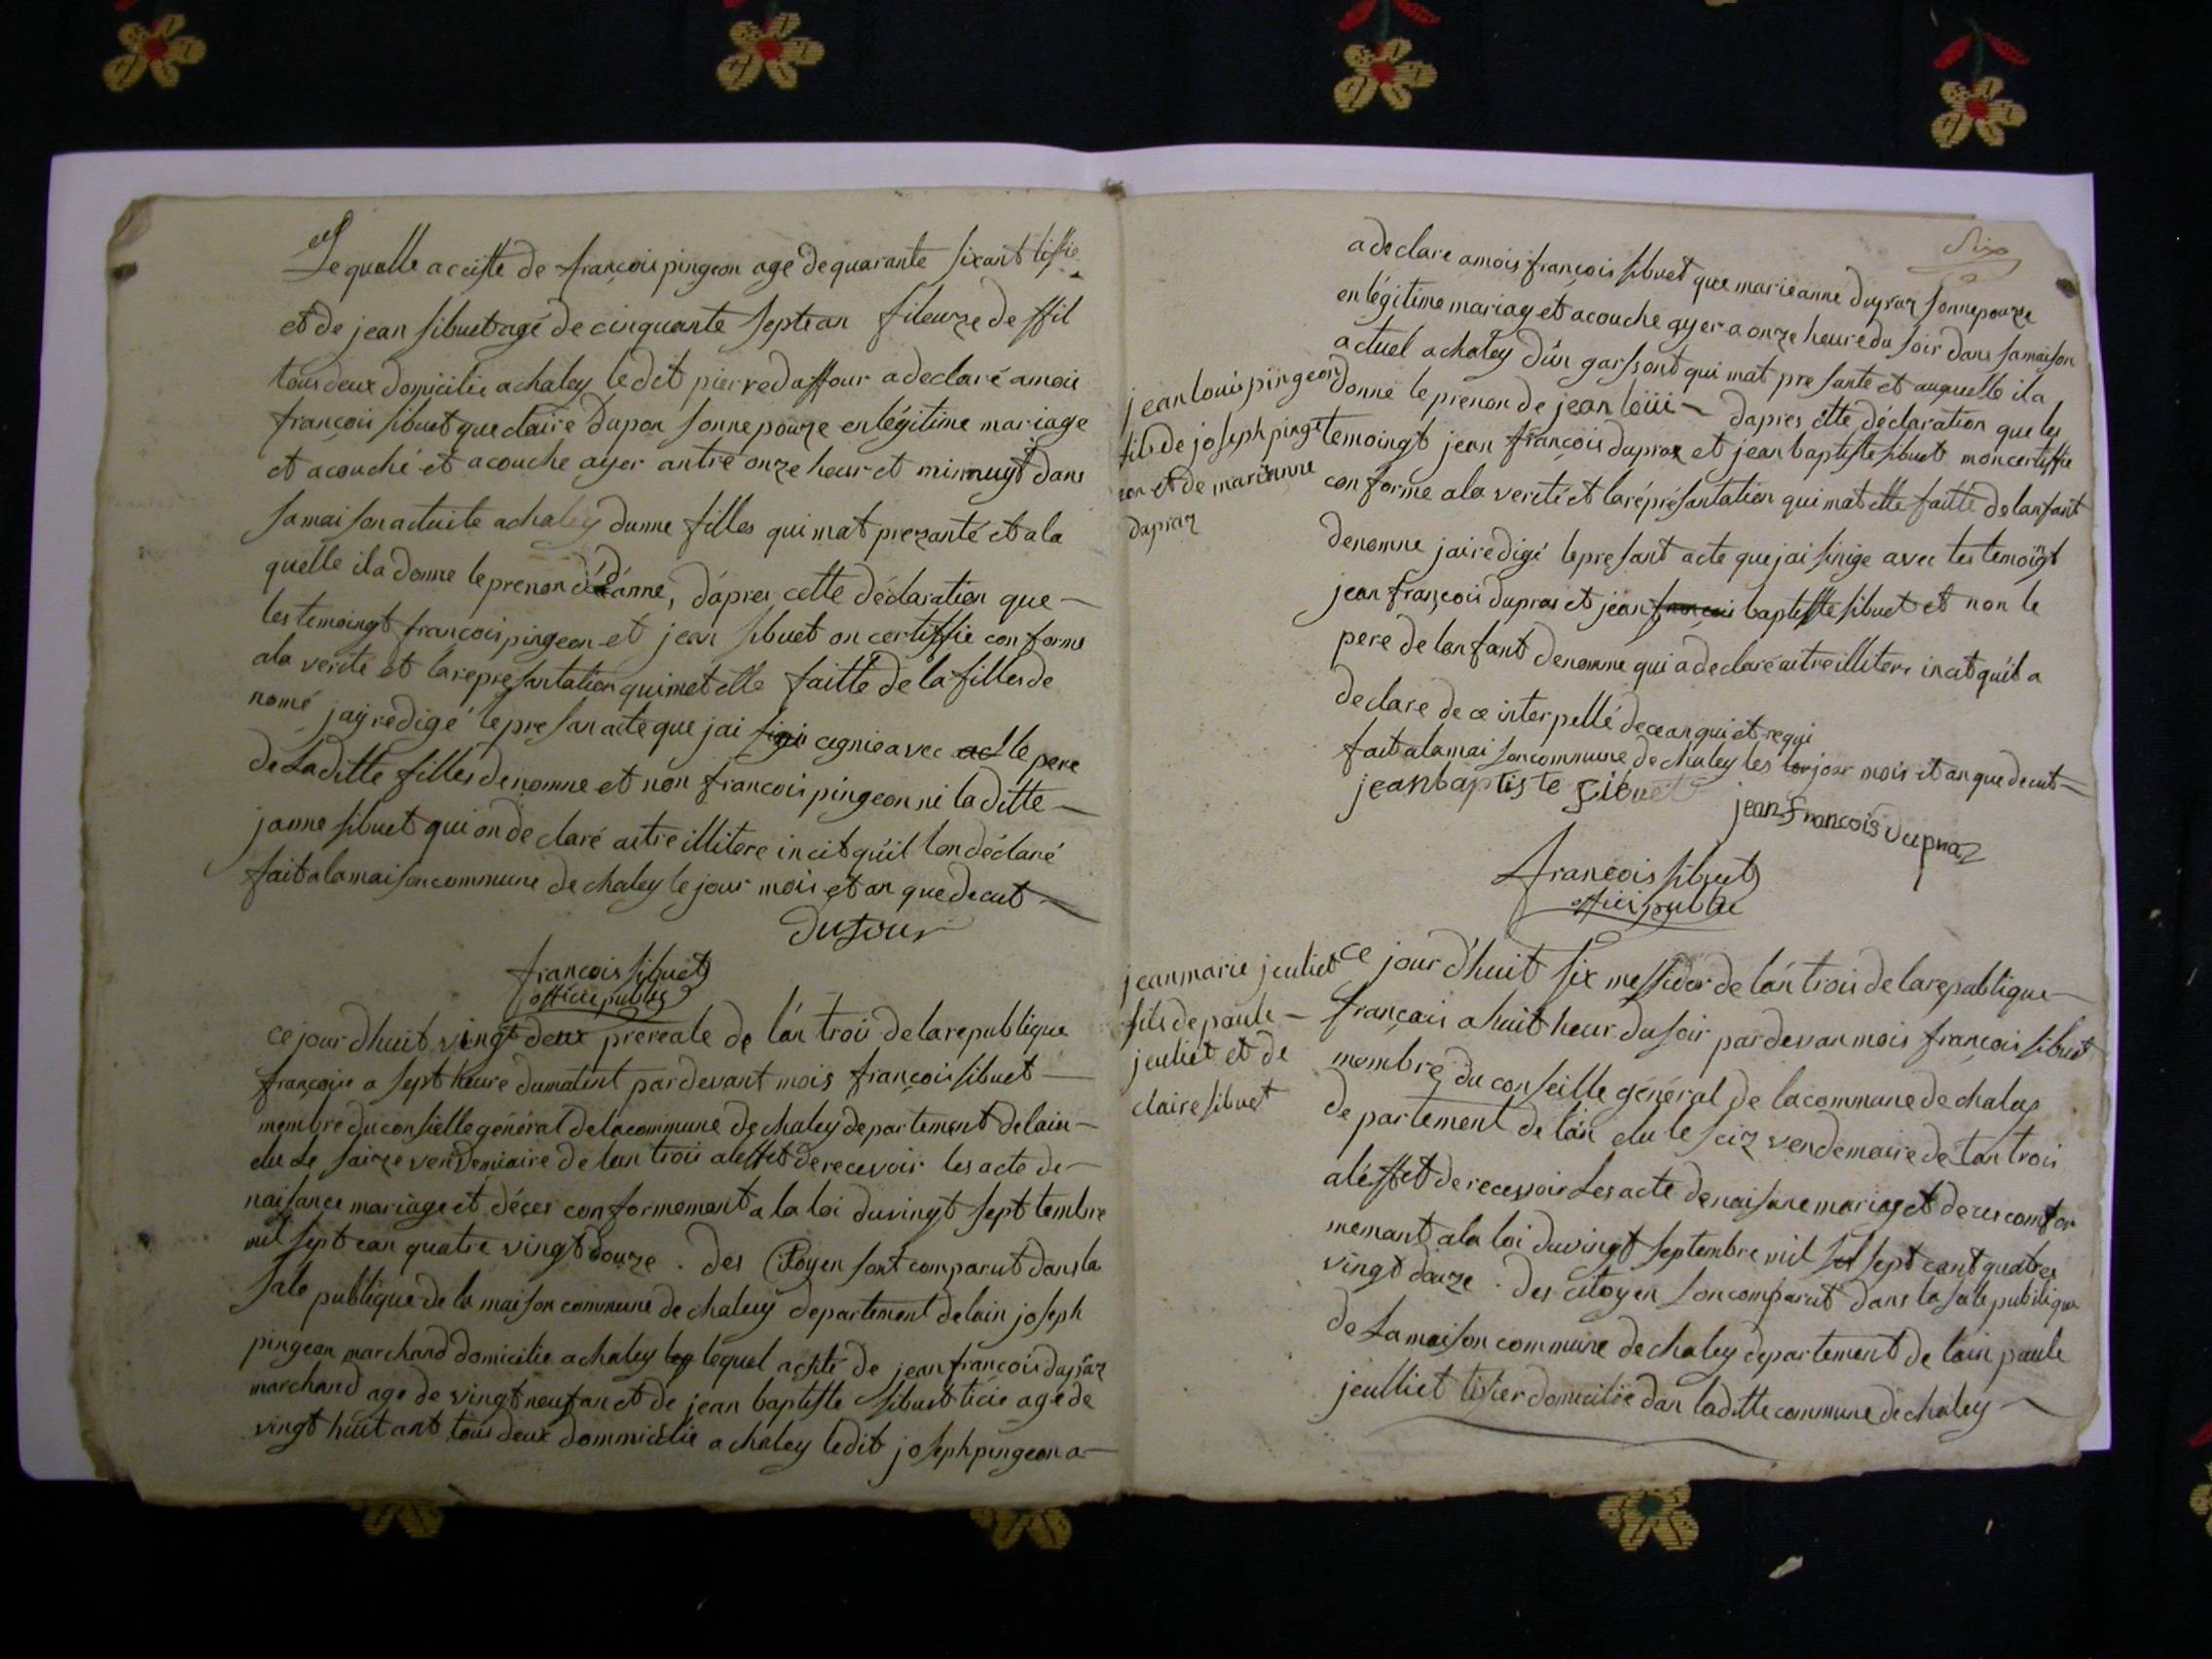 Lequelle acciste de françois pingeon age de quarante sixant tissie
et de jean sibuet agé de cinquante septean fileurze de ffil
tous deux domicilie a chaley ledit pierre daffour a declaré a mois
françois sibuet que claire dupon sonnepouze en légitime mariage
et acouché et acouche ayer antre onze heur et minnuyt dans
samaison actuite a chaley dunne filles qui mat prezanté et a la
quelle il a donne le prenon dánne, dápres cette déclaration que
les temoingt françois pingeon et jean sibuet on certiffie conforme
ala verité et la represantation qui met elle faitte de la filles de
nomé jay redigé le presan acte que jai signé cignie avec le pere
de Laditte filles denomne et non françois pingeon ni laditte
janne sibuet qui on declaré aitre illitere incit quil lon déclaré
fait ala maison commune de chaley le jour mois et an que decut
dufour
françois sibuet
officie public
ce jour dhuit vingt deux prereale de lán trois de la republique
françoise a sept heure dumatint par devant mois françois sibuet
membre du conseille général de la commune de chaley departement de lain
elu Le saize vendemiaire de lan trois aleffet de recevoir les acte de
naisance mariage et déces conformemant a la loi du vingt septtembre
mil sept can quatre vingt douze . des Citoyen sont comparut dans la
sale publique de la maison commune de chaley departement de lain joseph
pingeon marchand domicilie a chaley lequel acisté de jean françois dupraz
marchand age de vingt neuf an et de jean baptiste sibuet ticie agé de
vingt huit ant tous deux dommicilie a chaley ledit joseph pingeon a
Six
a declare amois françois sibuet que marieanne dupraz sonnepouze
en légitime mariag et acouche ayer a onze heure du soir dans samaison
actuel a chaley dún garssont qui mat presante et auquelle il a
donné le prenon de jean loüi dapres cette déclaration que les
temoingt jean françois dupraz et jean baptiste sibuet mon certiffie
conforme ala verité et la réprésantation qui mat elle faitte de lanfant
denomne jai redigé le presant acte que jai sinige avec les temoingt
jean françois dupras et jean françois baptiste sibuet et non le
pere de lanfant denomne qui a declaré aitre illitere incit quil a
declare de ce interpellé de cean qui et requi
fait ala maison commune de chaley les jour mois et an que decut
jean baptiste Sibuet
jean françois dupraz
françois sibuet
officie public
jean louis pingeon
fils de joseph pinge
eon et de marianne
dupraz
jean marie jeuliet
fils de paule
jeuliet et de
claire sibuet
ce jour d'huit six messidor de lán trois de la republique
français a huit heur du soir par devan mois françois sibuet
membre du conseille général de la commune de chaley
departement de lain elu le seiz vendemaire de lan trois
aléffet de recevoir Les acte de naisance mariage et deces comfor
memant ala loi du vingt septembre mil sept cant quatre
vingt douze . des citoyen son comparut dans la sale publique
de La maison commune de chaley departement de lain paule
jeulliet tisier domicilie dan laditte commune de chaley